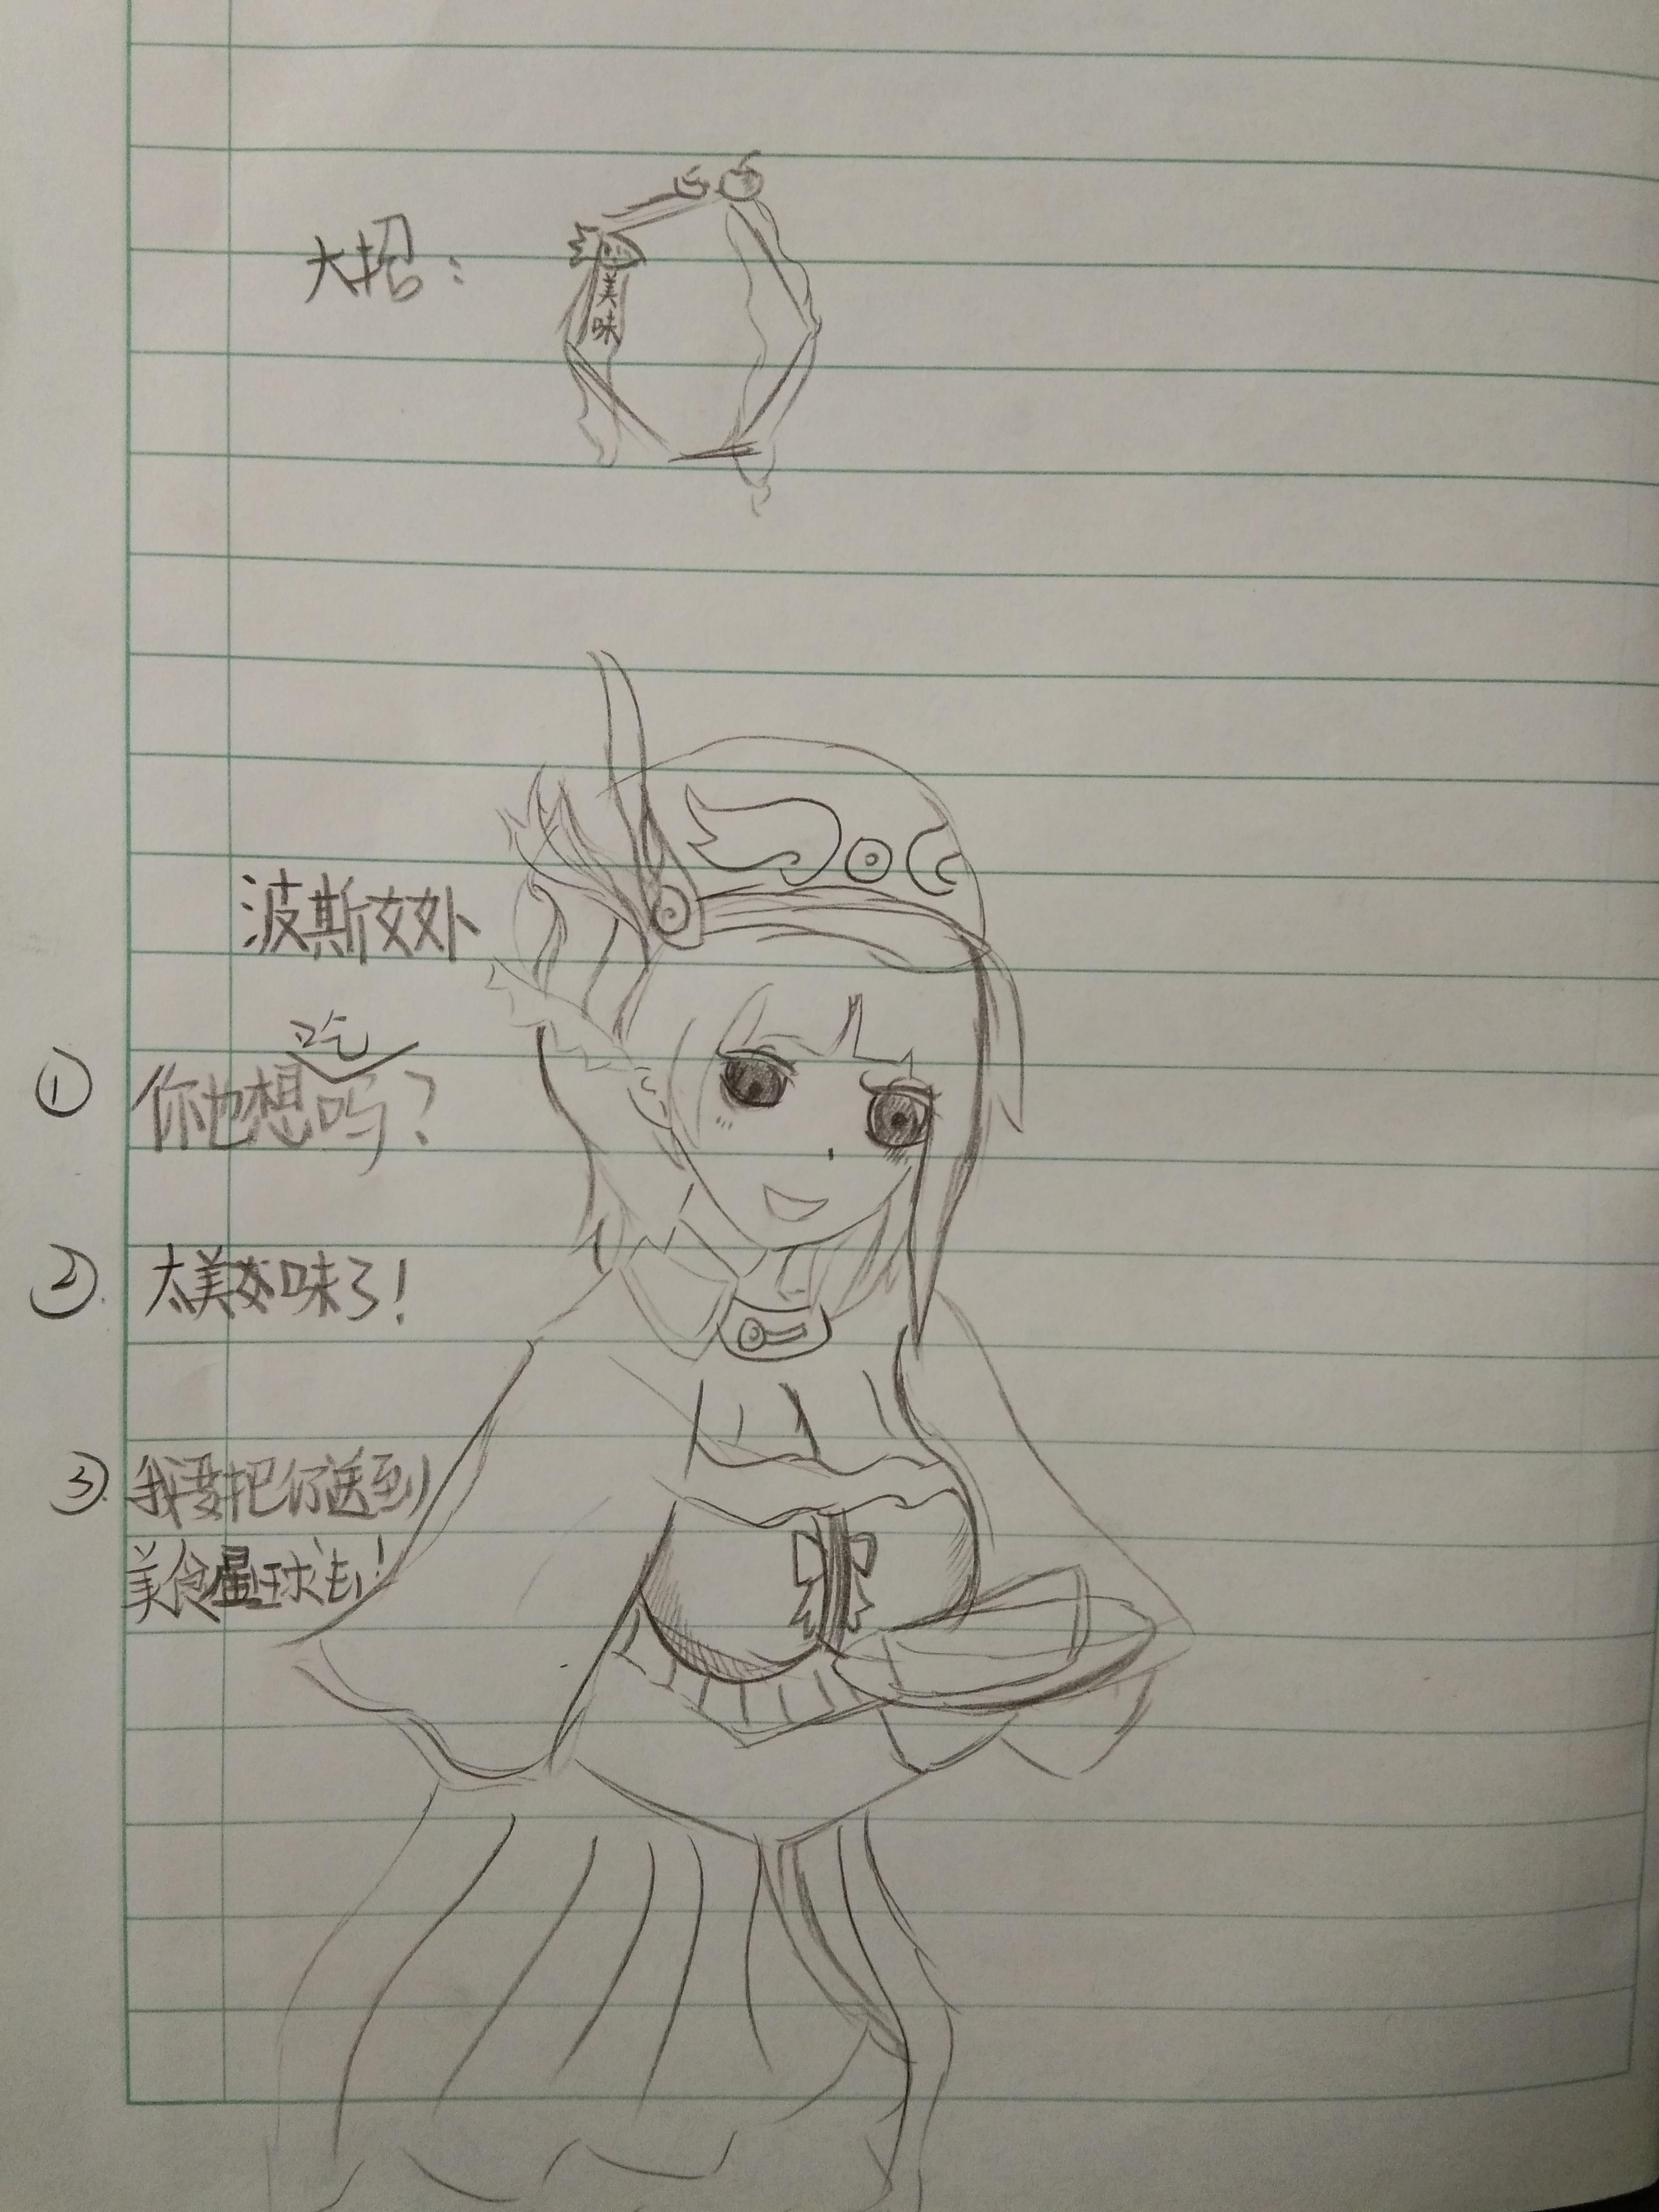 大招：
美味
波斯
你也想吃吗？
太美味了！
我要把你送到
美食星球去！